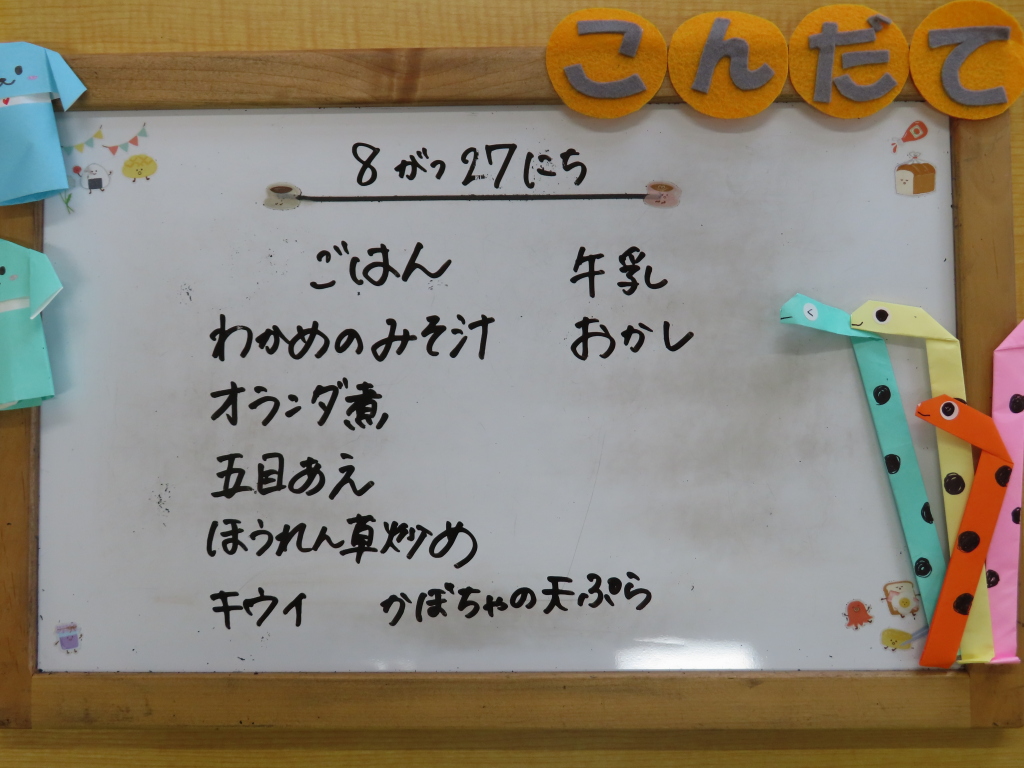 こんだて
8がつ27にち
ごはん
わかめのみそ汁
オランダ煮
五目あえ
ほうれん草炒め
キウイ かぼちゃの天ぷら
牛乳
おかし